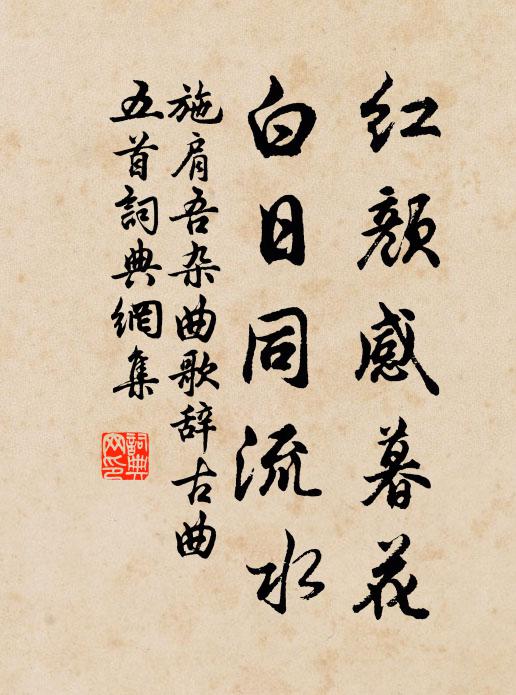 红颜感暮花
白日同流水
施肩吾杂曲歌辞古曲
五首詞典網集
詞典
网印